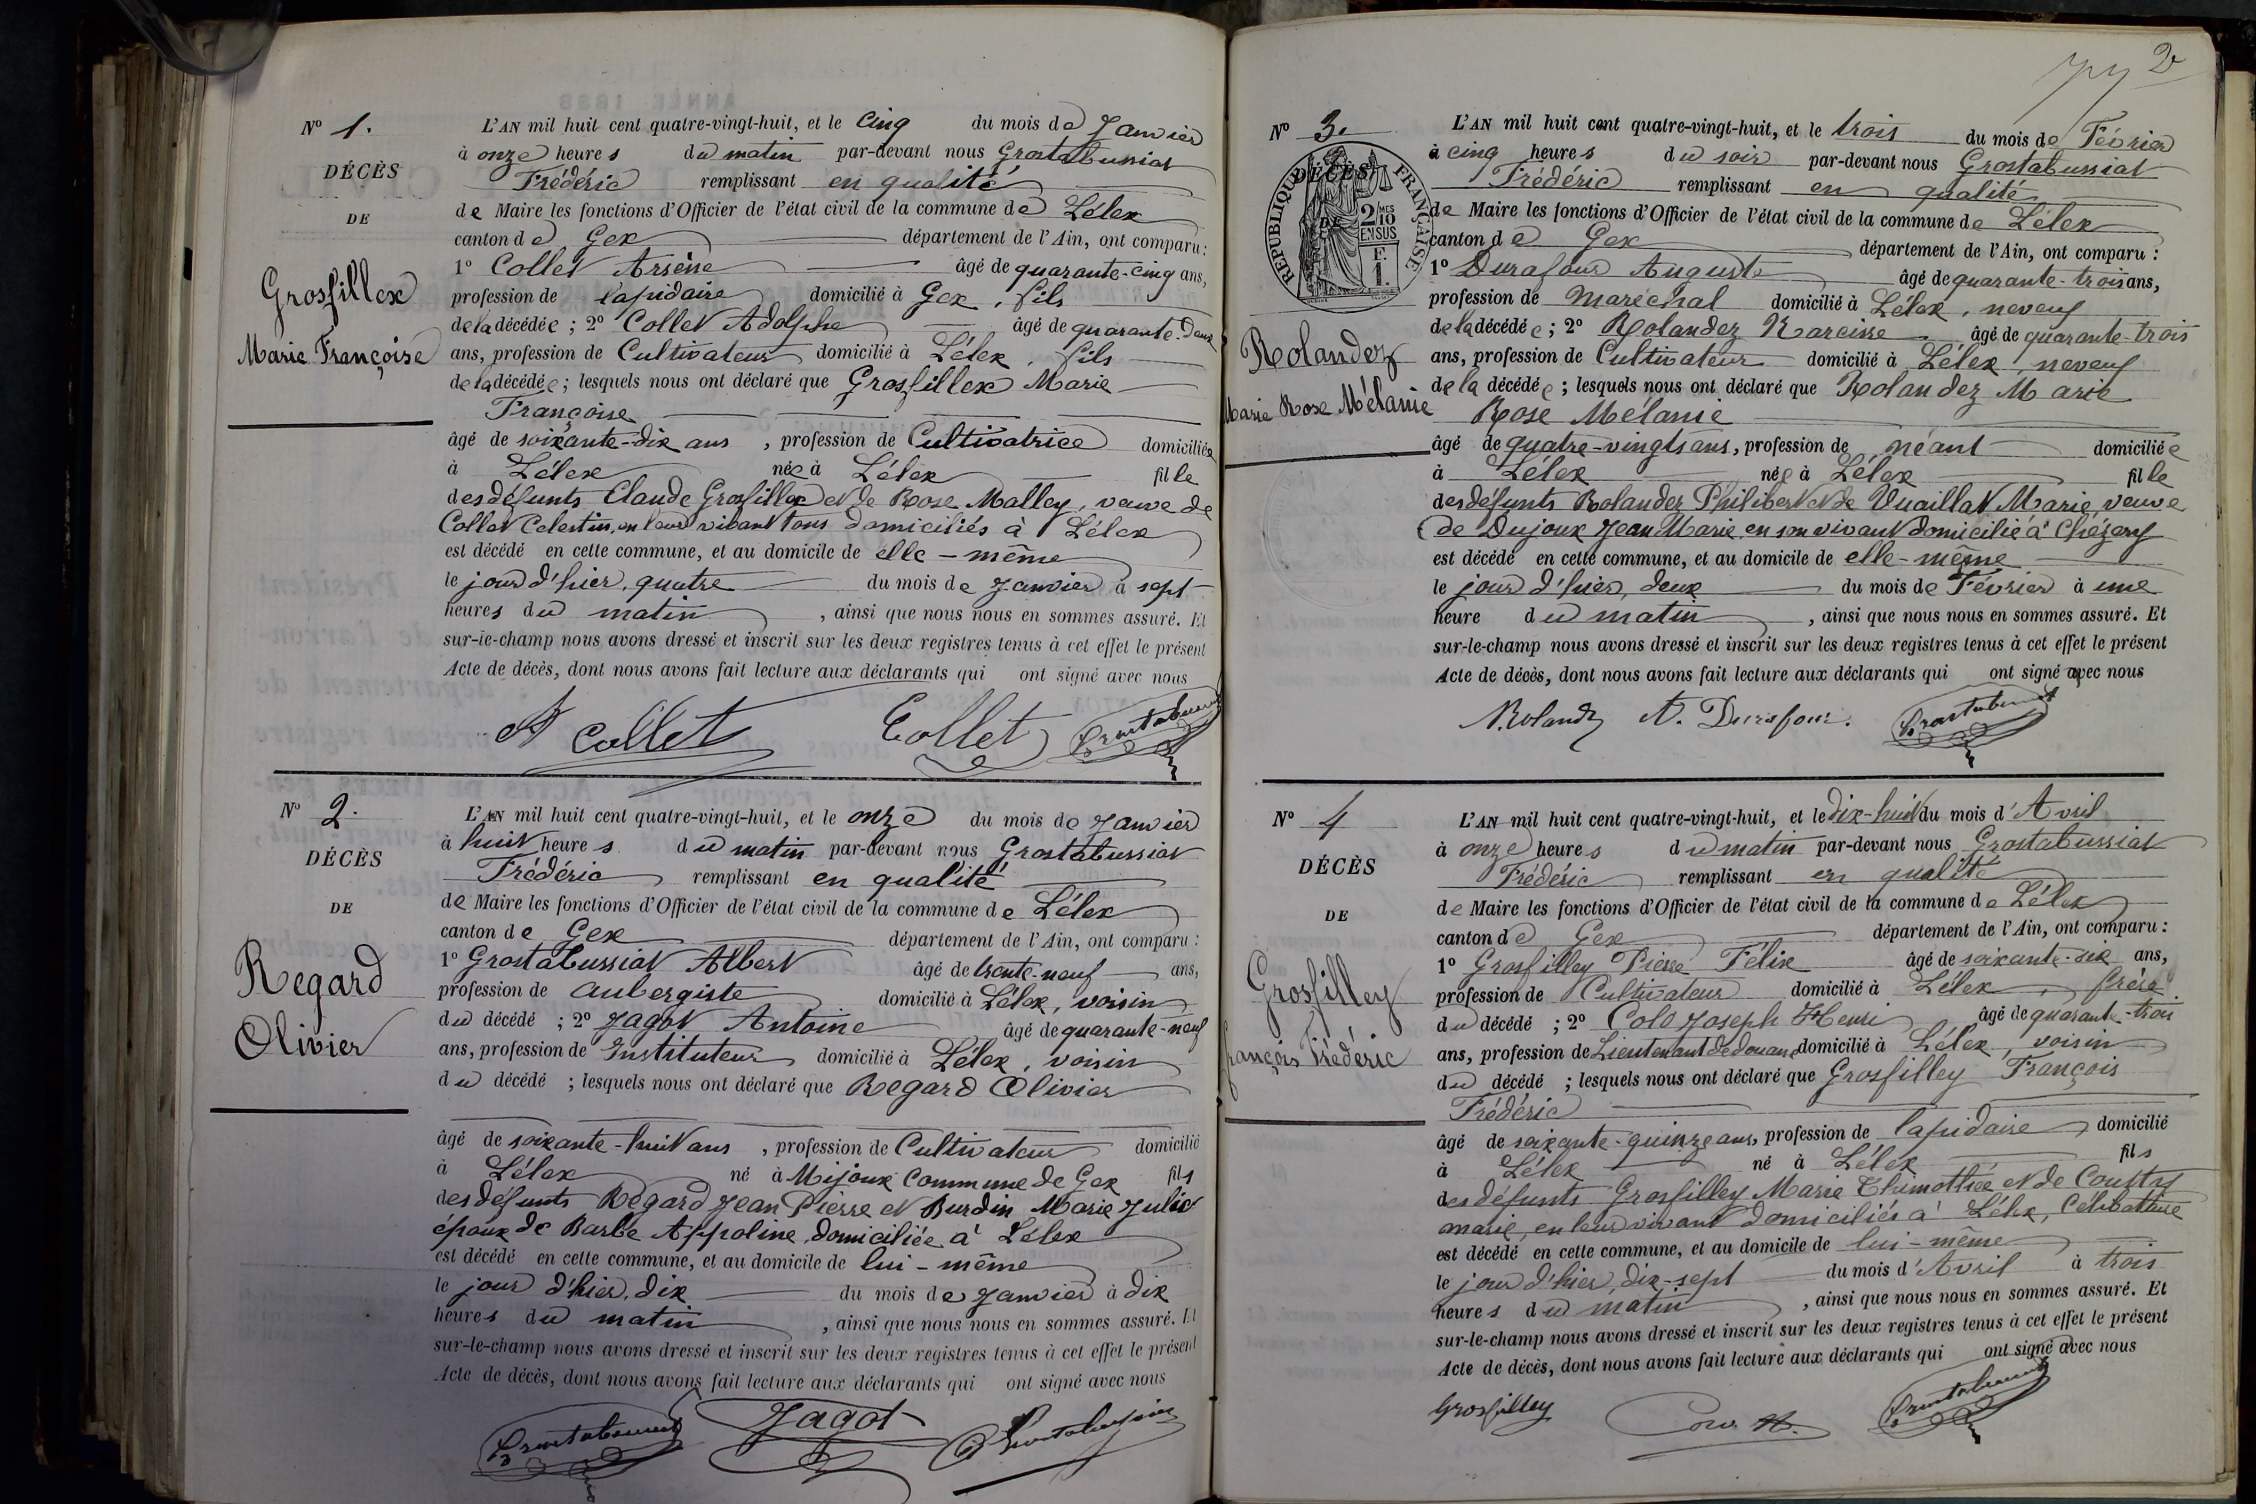 Nº 1.
DÉCÈS
DE
Grosfillex
Marie Françoise
L'AN mil huit cent quatre-vingt-huit, et le cinq du mois de Janvier
à onze heures du matin par-devant nous Grostabussiat
Frédéric remplissant en qualité
de Maire les fonctions d'Officier de l'état civil de la commune de Lélex
canton de Gex département de l'Ain, ont comparu :
1º Collet Arsène âgé de quarante-cinq ans,
profession de lapidaire domicilié à Gex, fils
de la décédée ; 2º Collet Adolphe âgé de quarante-deux
ans, profession de Cultivateur domicilié à Lélex, fils
de la décédée ; lesquels nous ont déclaré que Grosfillex Marie
Françoise
âgé de soixante-dix ans, profession de Cultivatrice domiciliée
à Lélex née à Lélex fille
des défunts Claude Grosfillex et de Rose Malley, veuve de
Collet Celestin, en leur vivant tous domiciliés à Lélex
est décédé en cette commune, et au domicile de elle-même
le jour d'hier, quatre du mois de Janvier à sept
heures du matin, ainsi que nous nous en sommes assuré. Et
sur-le-champ nous avons dressé et inscrit sur les deux registres tenus à cet effet le présent
Acte de décès, dont nous avons fait lecture aux déclarants qui ont signé avec nous
A Collet Collet Grostabussiat
Nº 2.
DÉCÈS
DE
Regard
Olivier
L'AN mil huit cent quatre-vingt-huit, et le onze du mois de Janvier
à huit heures du matin par-devant nous Grostabussiat
Frédéric remplissant en qualité
de Maire les fonctions d'Officier de l'état civil de la commune de Lélex
canton de Gex département de l'Ain, ont comparu :
1º Grostabussiat Albert âgé de trente-neuf ans,
profession de aubergiste domicilié à Lélex, voisin
du décédé ; 2º Jagot Antoine âgé de quarante-neuf
ans, profession de Instituteur domicilié à Lélex, voisin
du décédé ; lesquels nous ont déclaré que Regard Olivier
âgé de soixante-huit ans, profession de Cultivateur domicilié
à Lélex né à Mijoux commune de Gex fils
des défunts Regard Jean Pierre et Burdin Marie Julie
époux de Barbe Appoline, domiciliée à Lélex
est décédé en cette commune, et au domicile de lui-même
le jour d'hier, dix du mois de Janvier à dix
heures du matin, ainsi que nous nous en sommes assuré. Et
sur-le-champ nous avons dressé et inscrit sur les deux registres tenus à cet effet le présent
Acte de décès, dont nous avons fait lecture aux déclarants qui ont signé avec nous
Grostabussiat Jagot Grostabussiat
2
Nº 3.
DÉCÈS
DE
RÉPUBLIQUE FRANÇAISE
2/10 EN SUS
F. 1.
Rolandez
Marie Rose Mélanie
L'AN mil huit cent quatre-vingt-huit, et le trois du mois de Février
à cinq heures du soir par-devant nous Grostabussiat
Frédéric remplissant en qualité
de Maire les fonctions d'Officier de l'état civil de la commune de Lélex
canton de Gex département de l'Ain, ont comparu :
1º Durafour Auguste âgé de quarante-trois ans,
profession de maréchal domicilié à Lélex, neveu
de la décédée ; 2º Rolandez Narcisse âgé de quarante-trois
ans, profession de Cultivateur domicilié à Lélex, neveu
de la décédée ; lesquels nous ont déclaré que Rolandez Marie
Rose Mélanie
âgé de quatre-vingts ans, profession de néant domiciliée
à Lélex née à Lélex fille
des défunts Rolandez Philibert et de Vuaillat Marie, veuve
de Dujoux Jean Marie en son vivant domicilié à Chézery
est décédé en cette commune, et au domicile de elle-même
le jour d'hier, deux du mois de Février à une
heure du matin, ainsi que nous nous en sommes assuré. Et
sur-le-champ nous avons dressé et inscrit sur les deux registres tenus à cet effet le présent
Acte de décès, dont nous avons fait lecture aux déclarants qui ont signé avec nous
N. Rolandz A. Durafour. Grostabussiat
Nº 4
DÉCÈS
DE
Grosfilley
François Frédéric
L'AN mil huit cent quatre-vingt-huit, et le dix-huit du mois d'Avril
à onze heures du matin par-devant nous Grostabussiat
Frédéric remplissant en qualité
de Maire les fonctions d'Officier de l'état civil de la commune de Lélex
canton de Gex département de l'Ain, ont comparu :
1º Grosfilley Pierre Félix âgé de soixante-six ans,
profession de Cultivateur domicilié à Lélex, frère
du décédé ; 2º Joseph Henri âgé de quarante-trois
ans, profession de Lieutenant de douane domicilié à Lélex, voisin
du décédé ; lesquels nous ont déclaré que Grosfilley François
Frédéric
âgé de soixante-quinze ans, profession de lapidaire domicilié
à Lélex né à Lélex fils
des défunts Grosfilley Marie Thimothée et de
marie, en leur vivant domiciliés à Lélex, Célibattaire
est décédé en cette commune, et au domicile de lui-même
le jour d'hier, dix-sept du mois d'Avril à trois
heures du matin, ainsi que nous nous en sommes assuré. Et
sur-le-champ nous avons dressé et inscrit sur les deux registres tenus à cet effet le présent
Acte de décès, dont nous avons fait lecture aux déclarants qui ont signé avec nous
Grosfilley Grostabussiat